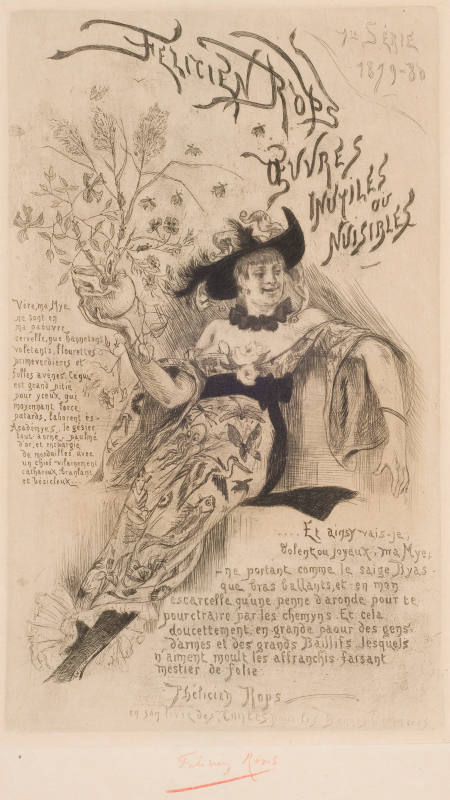 FÉLICIEN ROPS
1re SÉRIE
1879-80
ŒUVRES
INUTILES
OU
NUISIBLES
Vère, ma Mye
ne sont en
ma paouvre
cervelle, que hannetons
voletants, flourettes
primeverdières et
folles avènes. Ce qui
est grand pitié
pour yceux, qui
moyennant force
patards, laborent ès-
Acadèmyes, le gésier
tout aorné, paulmé
d'or, et enchargié
de médailles avec
un chief vilainement
cathareux, branlant
et bésicleux...
.... Et ainsy vais-je,
dolent ou joyeux, ma Mye,
ne portant comme le saige Byas
que bras ballants, et en mon
escarcelle qu'une penne d'aronde pour te
pourctraire par les chemyns. Et cela
doulcettement, en grande paour des gens
darmes et des grands Baillifs lesquels
n'aiment moult les affranchis faisant
mestier de folie
Phélicien Rops
en son livre des
Félicien Rops